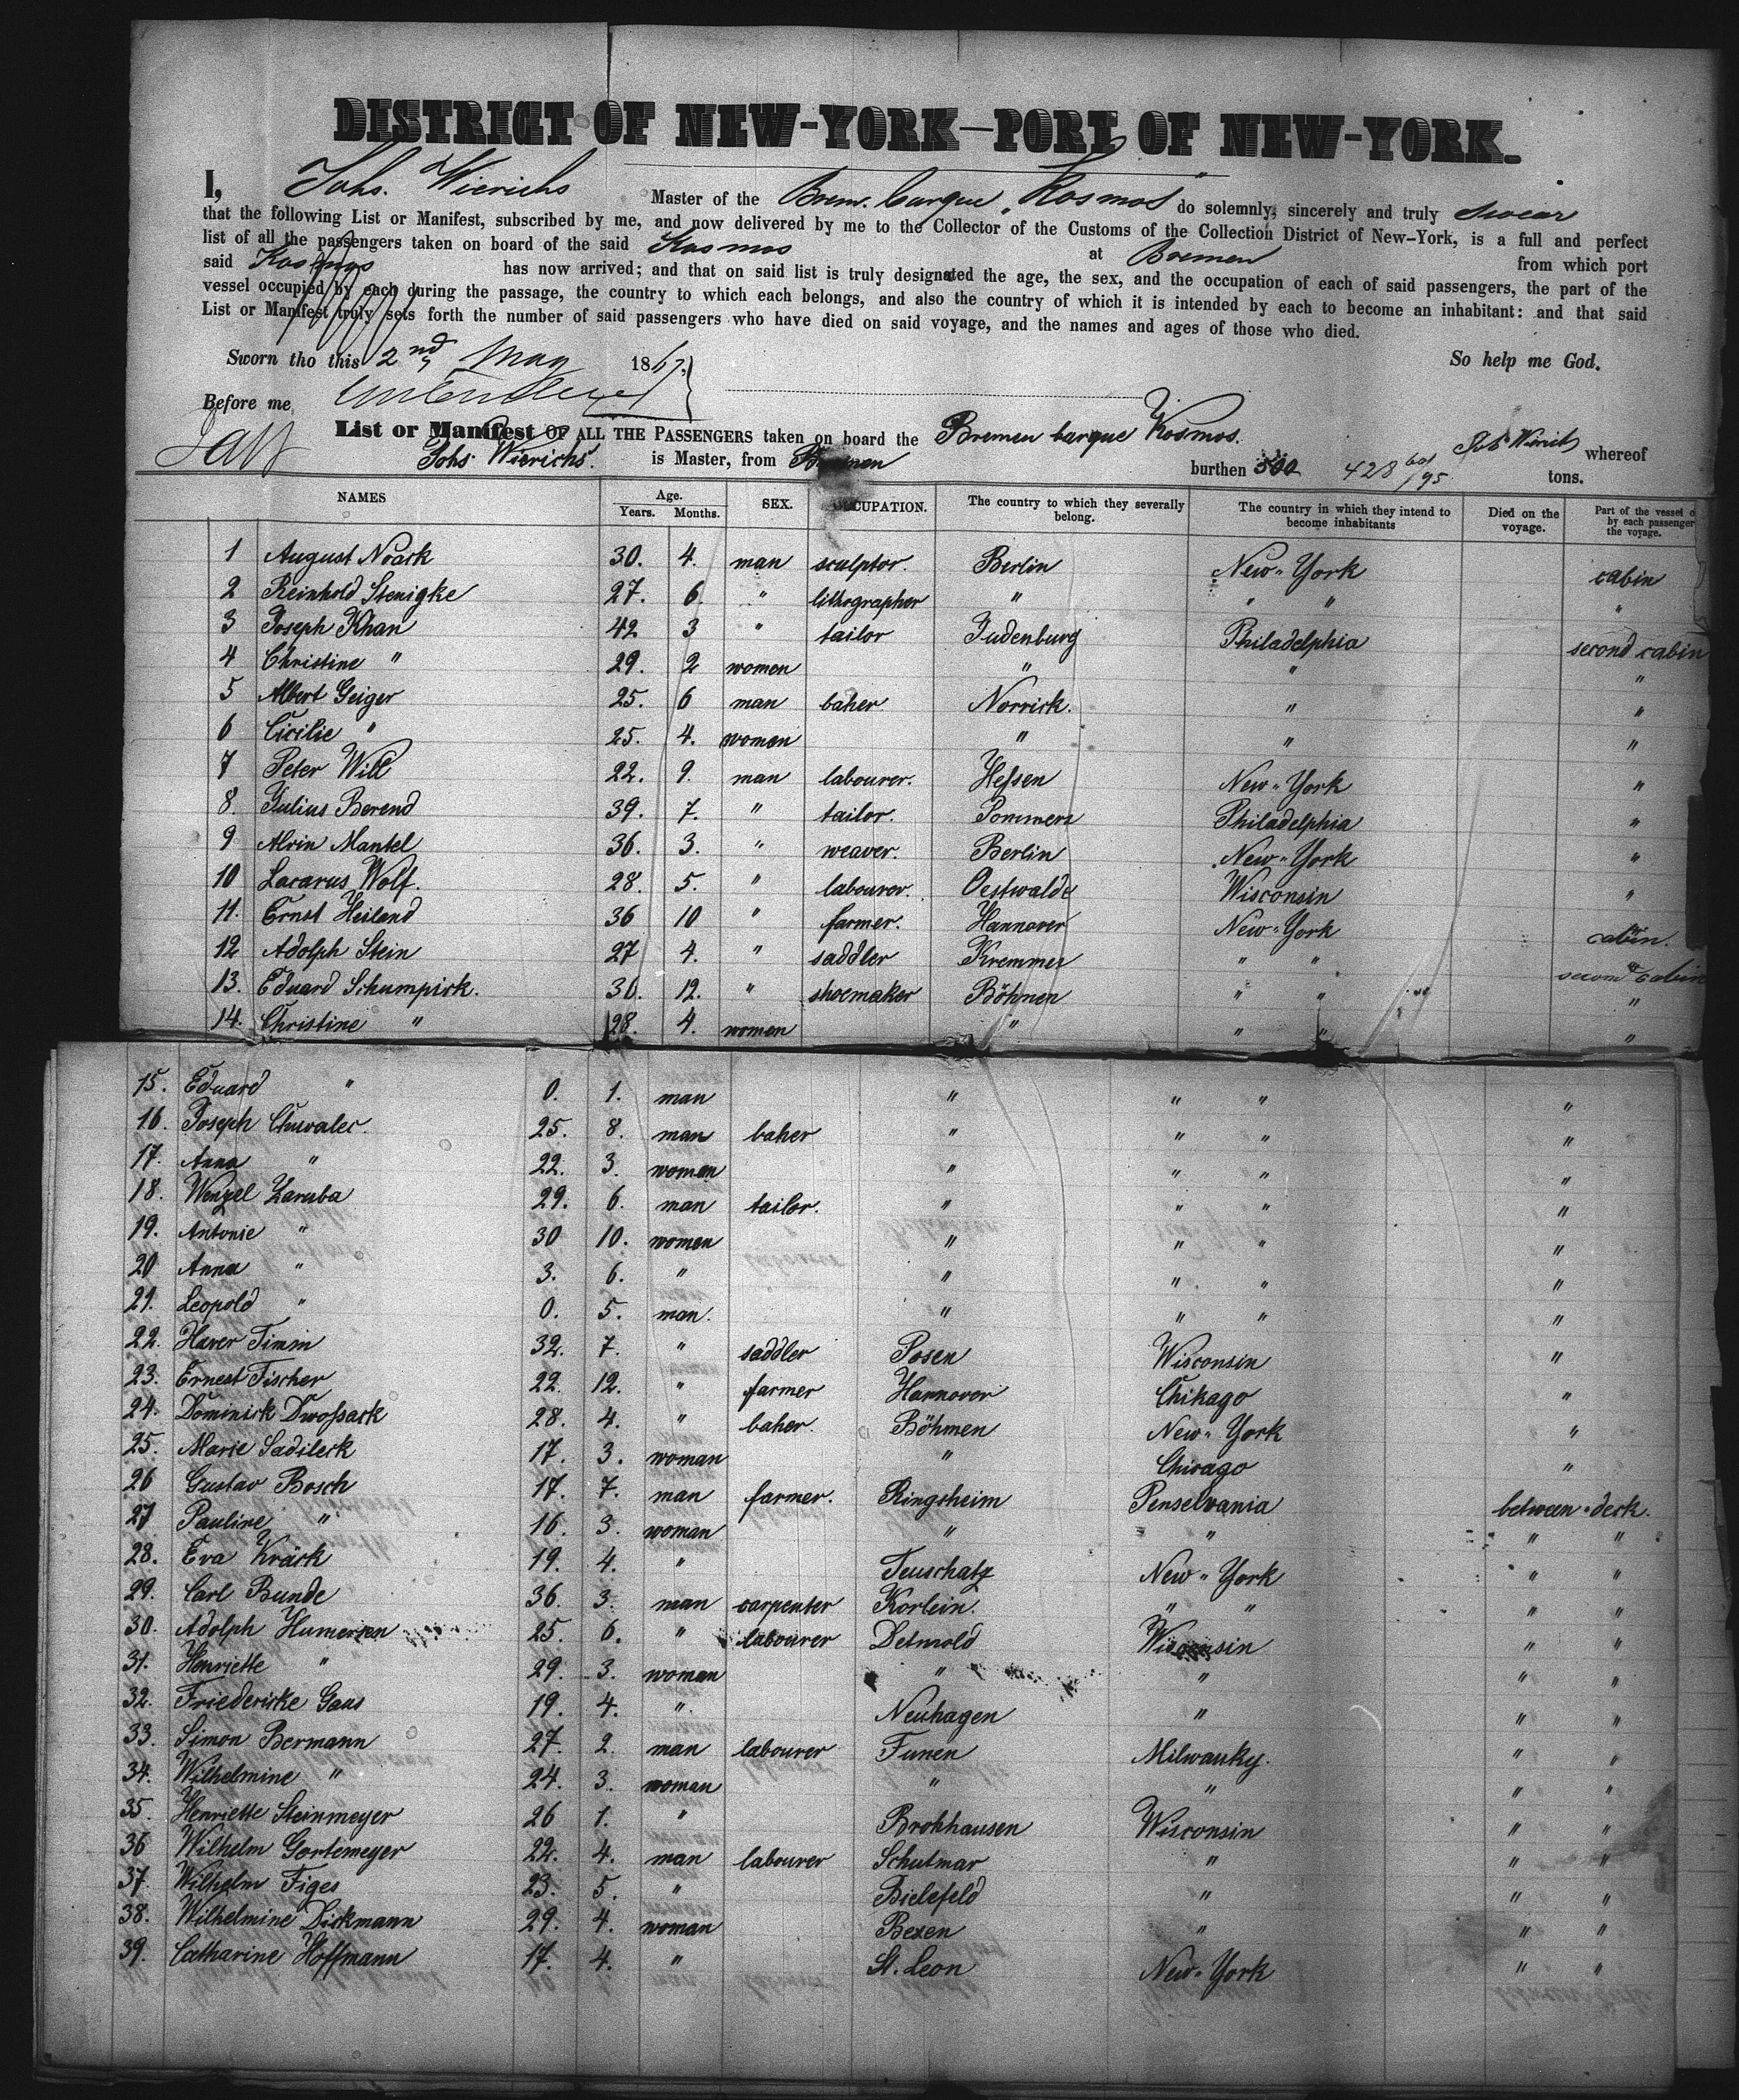 DISTRICT OF NEW-YORK—PORT OF NEW-YORK.
I, Johs. Wierichs Master of the Brem. barque „Kosmos" do solemnly, sincerely and truly swear
that the following List or Manifest, subscribed by me, and now delivered by me to the Collector of the Customs of the Collection District of New-York, is a full and perfect
list of all the passengers taken on board of the said Kosmos at Bremen from which port
said Kosmos has now arrived; and that on said list is truly designated the age, the sex, and the occupation of each of said passengers, the part of the
vessel occupied by each during the passage, the country to which each belongs, and also the country of which it is intended by each to become an inhabitant: and that said
List or Manifest truly sets forth the number of said passengers who have died on said voyage, and the names and ages of those who died.
Sworn tho this 2nd May 1867, So help me God.
Before me
List or Manifest OF ALL THE PASSENGERS taken on board the Bremen barque Kosmos. whereof
Johs Wierichs. is Master, from Bremen burthen 500 428 60/95 tons.
NAMES Age. Years. Months. SEX. OCCUPATION. The country to which they severally belong. The country in which they intend to become inhabitants Died on the voyage. Part of the vessel o by each passenger the voyage.
1 August Noack 30. 4. man sculptor. Berlin New-York cabin
2 Reinhold Stenigke 27. 6. " lithographer " " " "
3 Joseph Khan 42 3 " tailor Judenburg Philadelphia second cabin
4 Christine " 29. 2 women " " "
5 Albert Geiger 25. 6 man baher Norrick. " "
6 Cicilie " 25. 4. women " " "
7 Peter Will 22. 9. man labourer. Hessen New-York "
8. Julius Berend 39. 7. " tailor. Pommern Philadelphia "
9 Alvin Mantel 36. 3. " weaver. Berlin New-York "
10 Lacarus Wolf. 28. 5. " labourer. Oestwalde Wisconsin "
11. Ernst Heiland 36 10 " farmer. Hannover New-York cabin.
12 Adolph Stein 27 4. " saddler Kremmen " " second cabin
13. Eduard Schumpick. 30. 12. " shoemaker Böhmen " " "
14. Christine " 28. 4. women " " " "
15. Eduard " 0. 1. man " " " "
16. Joseph Chwalec. 25. 8. man baher " " " "
17. Anna " 22. 3. women " " " "
18. Wenzel Zaruba 29. 6. man tailor. " " " "
19. Antonie " 30 10. women " " " "
20 Anna " 3. 6. " " " " "
21. Leopold " 0. 5. man. " " " "
22. Haver Timm 32. 7. " saddler Posen Wisconsin "
23. Ernest Fischer 22. 12. " farmer Hannover Chikago "
24. Dominick Dwossack 28. 4. " baher. Böhmen New-York "
25. Marie Sadileck 17. 3. woman " Chicago "
26 Gustav Bosch 17. 7. man farmer. Ringsheim Penselvania between-deck.
27 Pauline " 16. 3. woman " " " "
28. Eva Kräck 19. 4. " Teuschatz New-York " "
29. Carl Bunde 36. 3. man carpenter Korlein. " " " "
30. Adolph Humersen 25. 6. " labourer Detmold Wisconsin " "
31. Henriette " 29. 3. woman " " " "
32. Friedericke Gaus 19. 4. " Neuhagen " " "
33. Simon Bermann 27. 2. man labourer Funen Milwauky. " "
34. Wilhelmine " 24. 3. woman " " " "
35. Henriette Steinmeyer 26 1. " Brokhausen Wisconsin " "
36 Wilhelm Gortemeyer 22. 4. man labourer Schutmar " " "
37. Wilhelm Figes 23. 5. " Bielefeld " " "
38. Wilhelmine Dickmann 29. 4. woman Bexen " " "
39. Catharine Hoffmann 17. 4. " St. Leon New-York " "